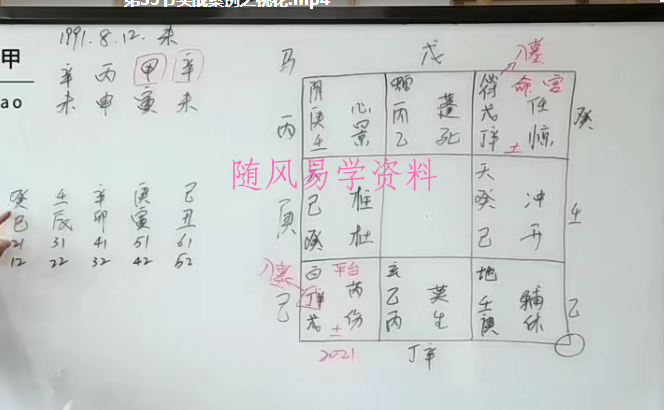 第33节实战案例之桃花.mp4
1991.8.12.未
甲
ao
辛 丙 甲 辛
未 申 寅 未
癸 壬 辛 庚 己
巳 辰 卯 寅 丑
21 31 41 51 61
12 22 32 42 52
马 戊 入墓
丙 癸
庚 壬
己 己
阴 心
庚 景
壬
蓬
丙 死
乙
符 命宫
戊 任
丁辛 惊
土
己 柱
癸 杜
天
癸 冲
己 开
入墓
白 平台
丁辛 芮
戊 伤
土
玄
乙 英
丙 生
地
壬 辅
庚 休
2021 丁辛
随风易学资料